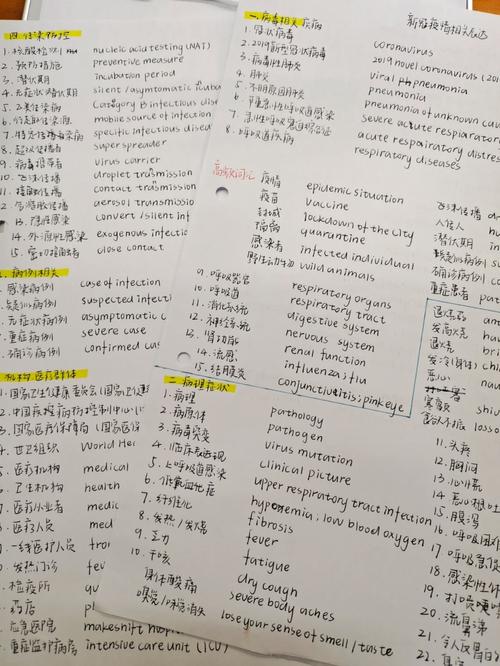 四.传染防控
1.核酸检测 nucleic acid testing (NAT)
2.预防措施 preventive measure
3.潜伏期 incubation period
4.无症状潜伏期 silent / asymptomatic
5.乙类传染病 Category B infectious
6. mobile source of infection
7.特定传播 specific infectious
8.超级传播者 super spreader
9.病毒携带者 virus carrier
10.飞沫传播 droplet transmission
11.接触传播 contact transmission
12.气溶胶传播 aerosol transmission
13.隐性感染 convert / silent inf
14.外源性感染 exogenous infectio
15.密切接触者 close contact
病例相关
感染病例 case of infection
疑似病例 suspected infecti
无症状病例 asymptomatic
重症病例 severe case
确诊病例 confirmed cas
机构医疗群体
1.国家卫生健康委员会
2.中国疾病预防控制中心
3.国家医疗保障局
4.世卫组织 World He
5.医疗机构 medical
6.卫生机构 health
7.医疗从业者 medic
8.医疗人员 med
一线医护人员
发热门诊
检疫所
药店
应急医院 makeshift hosp
重症监护病房 intensive care unit (ICU)
新冠疫情相关
一.病毒相关疾病
1.冠状病毒 coronavirus
2.2019新型冠状病毒 2019 novel coronavirus
3.病毒性肺炎 viral pneumonia
4.肺炎 pneumonia
5.不明原因肺炎 pneumonia of unknown cau
6.严重急性呼吸道感染 severe acute respiarator
7.急性呼吸窘迫综合征 acute respairatory distres
8.呼吸道疾病 respiratory diseases
高频词汇
疫情 epidemic situation
疫苗 vaccine
封城 lockdown of the city
隔离 quarantine
感染者 infected individual
野生动物 wild animals
9.呼吸器官 respiratory organs
10.呼吸道 respiratory tract
11.消化系统 digestive system
12.神经系统 nervous system
13.肾功能 renal function
14.流感 influenza; flu
15.结膜炎 conjunctivitis; pink eye
二.病理症状
1.病理 pathology
2.病原体 pathogen
3.病毒突变 virus mutation
4.临床表现 clinical picture
5.上呼吸道感染 upper respiratory tract infection
6.低氧血症 hypoxemia; low blood oxygen
7.纤维化 fibrosis
8.发热/发烧 fever
9.乏力 fatigue
10.干咳 dry cough
身体酸痛 severe body aches
嗅觉/味觉消失 lose your sense of smell / taste
飞沫传播
潜伏期
疑似病例
确诊病例
重症患者
退烧药
发高烧
退烧
发冷(身体)
恶心
寒颤
11.头疼
12.胸闷
13.心悸
14.恶心呕吐
15.腹泻
16.呼吸困难
17.呼吸急促
18.感染性休
19.打喷嚏
20.流鼻涕
21.令人反胃
22.